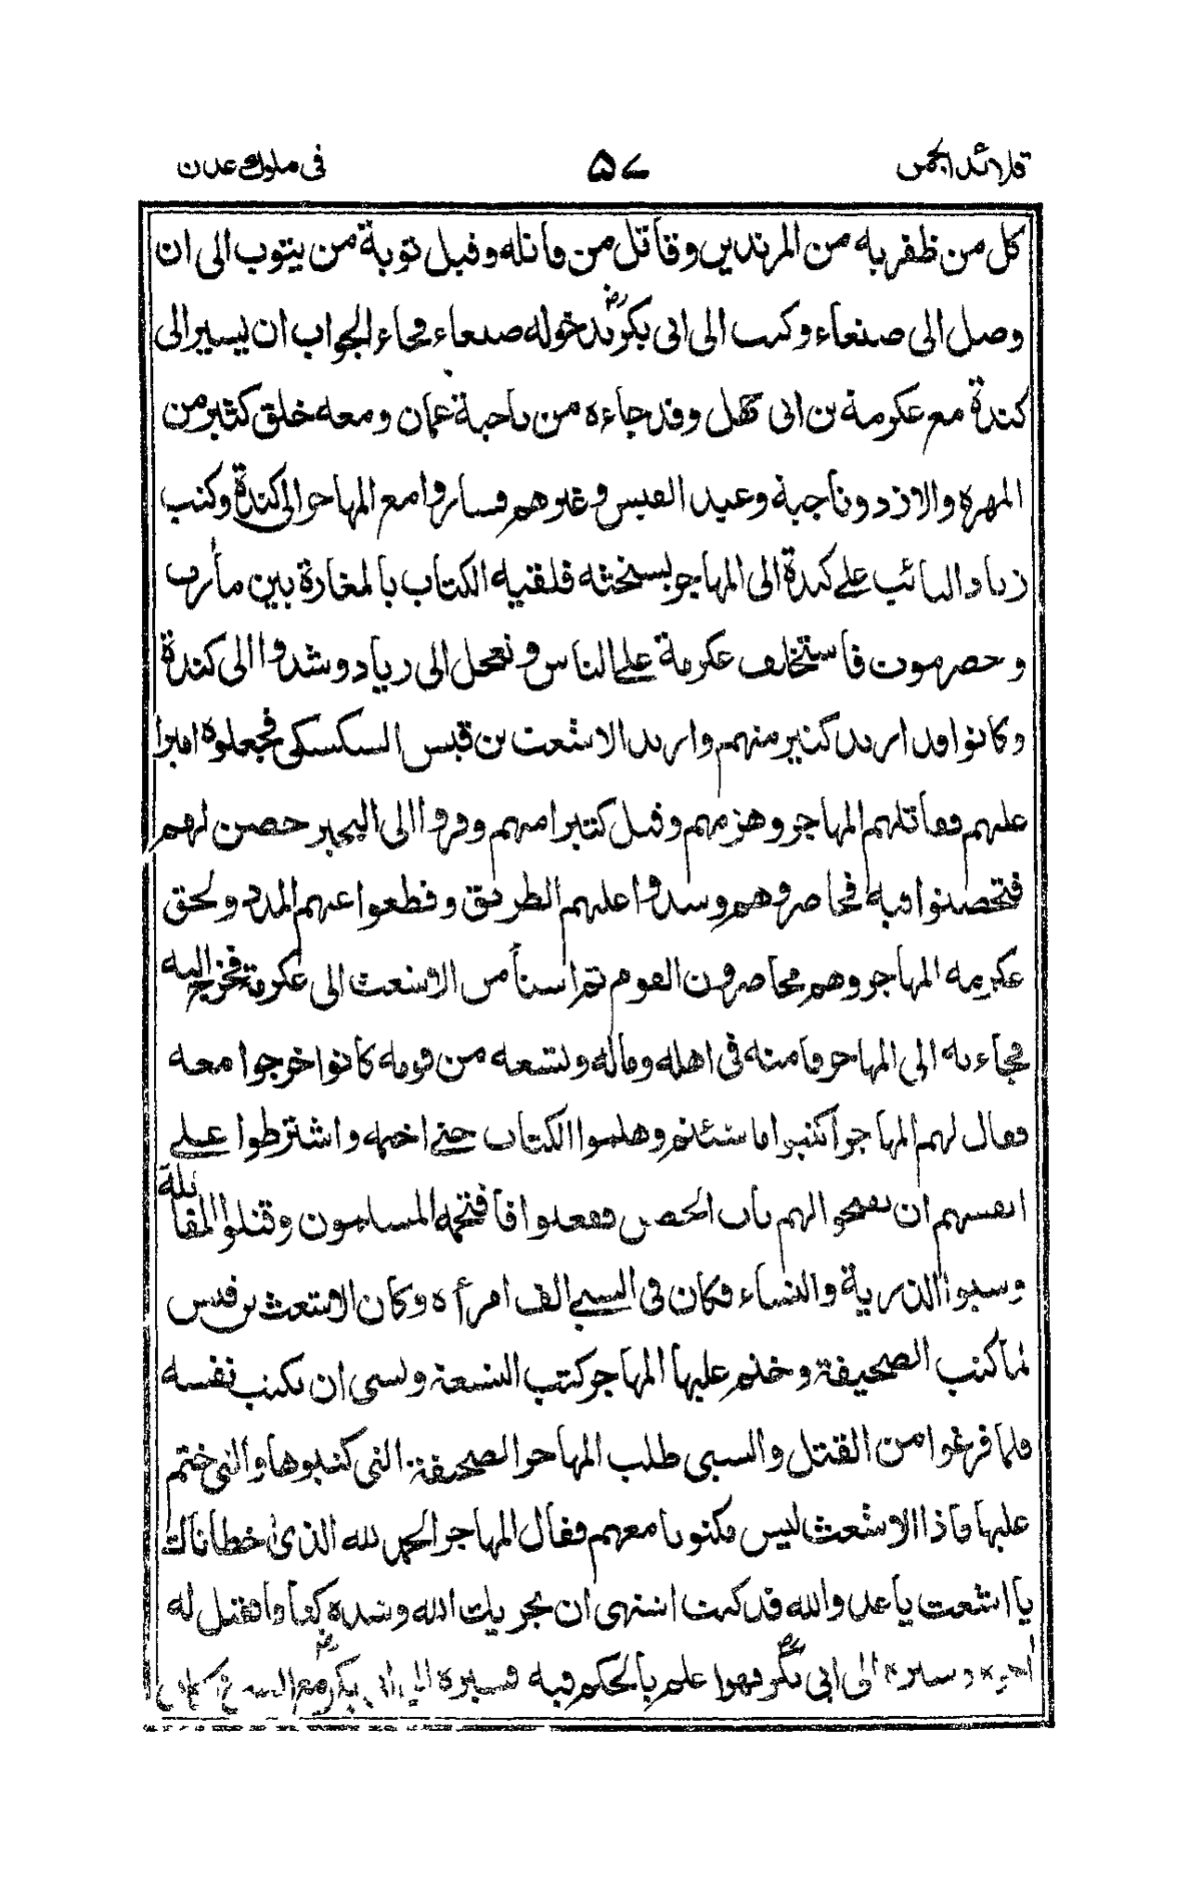 قلائد الجمن ۵۷ فى ملوك عدن
كل من ظفر به من المرتدين وقاتل من قاتله وقبل توبة من يتوب الى ان
وصل الى صنعاء وكتب الى ابى بكر رض بدخوله صنعاء فجاء الجواب ان يسير الى
كندة مع عكرمة بن ابى جهل وقد جاءه من ناحية عمان ومعه خلق كثير من
المهره والازد وناجية وعبد القيس وغيرهم فساروا مع المهاجر الى كندة وكتب
زياد النائب على كندة الى المهاجر يستحثه فلقيه الكتاب بالمغازة بين مأرب
وحضرموت فاستخلف عكرمة على الناس وتعجل الى زياد وشدوا الى كندة
وكانوا قد ارتد كثير منهم وارتد الاشعث بن قيس السكسكى فجعلوه اميرا
عليهم فقاتلهم المهاجر وهزمهم وقتل كثيرا منهم وفروا الى النجير حصن لهم
فتحصنوا فيه فحاصروهم وسدوا عليهم الطريق وقطعوا عنهم المدد ولحق
عكرمه المهاجر وهم محاصرون القوم ثم استأمن الاشعث الى عكرمة فخرج اليه
فجاء به الى المهاجر فامنه فى اهله وماله وتسعه من قومه كانوا خرجوا معه
فقال لهم المهاجر اكتبوا ما شئتم وهلموا الكتاب حتى اختمه واشترطوا على
انفسهم ان يفتحوا لهم باب الحصن ففعلوا فافتتحه المسلمون وقتلوا المقاتلة
وسبوا الذرية والنساء فكان فى السبى الف امرأه وكان الاشعث بن قيس
لما كتب الصحيفة وختم عليها المهاجر كتب التسعة ونسى ان يكتب نفسه
فلما فرغوا من القتل والسبى طلب المهاجر الصحيفة التى كتبوها والتى ختم
عليها فاذا الاشعث ليس مكتوبا معهم فقال المهاجر الحمد لله الذى خطأناك
يا اشعث يا عدو الله قد كنت اشتهى ان يخزيك الله وشده كتافا فقيل له
أخره وسيره الى ابى بكر رض فهو اعلم بالحكم فيه فسيره الى ابى بكر رض مع السبى